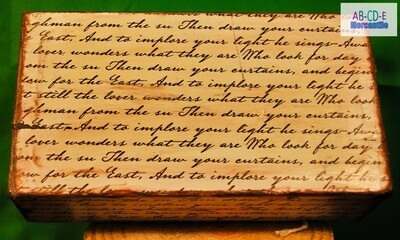 AB-CD-E
Mercantile
what they are Who look
ghman from the su Then draw your curtains,
East, And to implore your light he sings-Awa
lover wonders what they are Who look for day
om the su Then draw your curtains, and begin
aw for the East, And to implore your light he
t still the lover wonders what they are Who look
ghman from the su Then draw your curtains,
East, And to implore your light he sings-Awa
lover wonders what they are Who look for day
om the su Then draw your curtains, and begin
w for the East, And to implore your light he
still the lover wonders what they are Who look